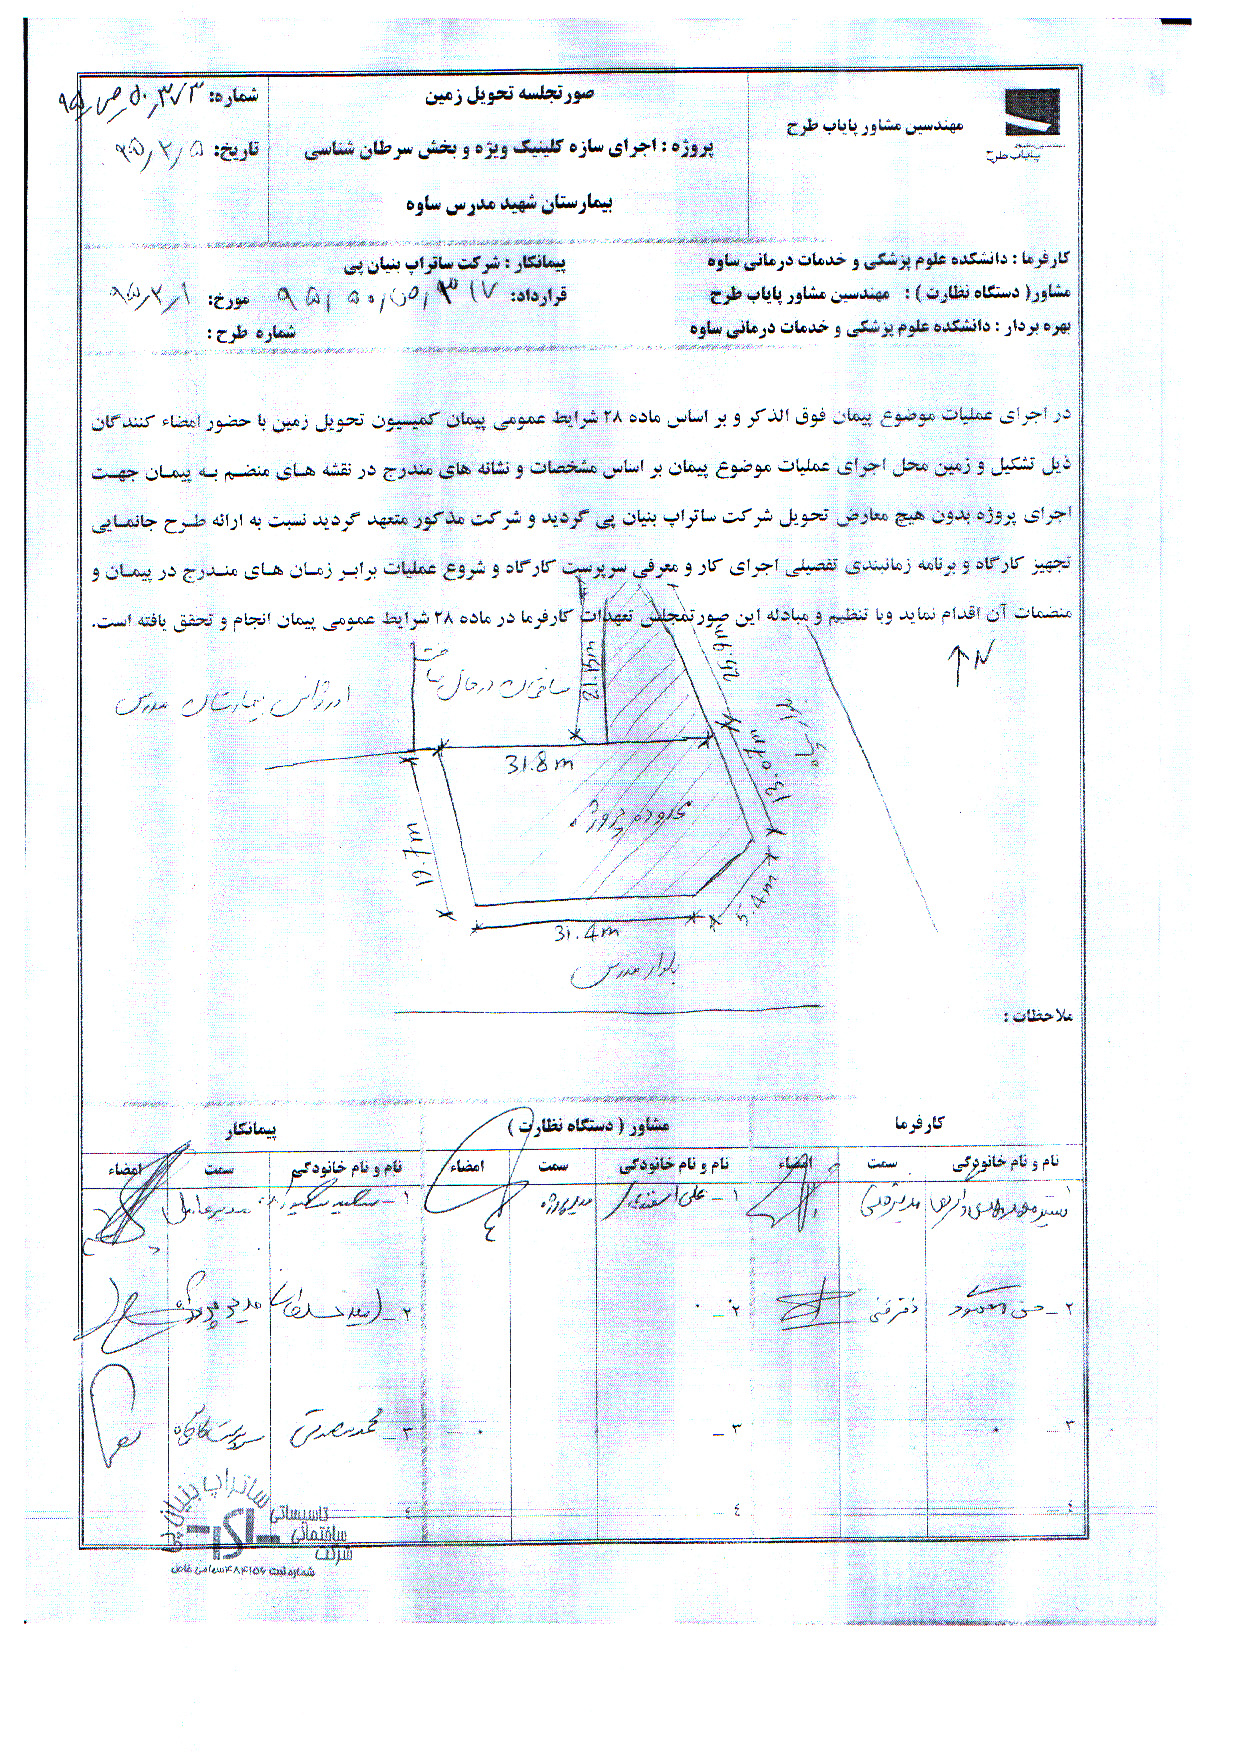 مهندسین مشاور پایاب طرح
پایاب طرح
صورتجلسه تحویل زمین
پروژه : اجرای سازه کلینیک ویژه و بخش سرطان شناسی
بیمارستان شهید مدرس ساوه
شماره: ۹۵/ص/۵۰/۳۷۳
تاریخ: ۹۵/۲/۵
کارفرما : دانشکده علوم پزشکی و خدمات درمانی ساوه
مشاور( دستگاه نظارت ) : مهندسین مشاور پایاب طرح
بهره بردار : دانشکده علوم پزشکی و خدمات درمانی ساوه
پیمانکار : شرکت ساتراپ بنیان پی
قرارداد: ۹۵/۵۰/ص/۳۱۷ مورخ: ۹۵/۲/۱
شماره طرح :
در اجرای عملیات موضوع پیمان فوق الذکر و بر اساس ماده ۲۸ شرایط عمومی پیمان کمیسیون تحویل زمین با حضور امضاء کنندگان
ذیل تشکیل و زمین محل اجرای عملیات موضوع پیمان بر اساس مشخصات و نشانه های مندرج در نقشه های منضم به پیمان جهت
اجرای پروژه بدون هیچ معارض تحویل شرکت ساتراپ بنیان پی گردید و شرکت مذکور متعهد گردید نسبت به ارائه طرح جانمایی
تجهیز کارگاه و برنامه زمانبندی تفصیلی اجرای کار و معرفی سرپرست کارگاه و شروع عملیات برابر زمان های مندرج در پیمان و
منضمات آن اقدام نماید وبا تنظیم و مبادله این صورتمجلس تعهدات کارفرما در ماده ۲۸ شرایط عمومی پیمان انجام و تحقق یافته است.
N
ساختمان در حال ساخت
اورژانس بیمارستان مدرس
31.8 m
13.07 m
محدوده پروژه
19.7 m
5.4 m
31.4 m
بلوار مدرس
ملاحظات :
کارفرما
مشاور ( دستگاه نظارت )
پیمانکار
نام و نام خانودگی سمت امضاء نام و نام خانودگی سمت امضاء نام و نام خانودگی سمت امضاء
مدیر فنی
۱ _ علی مدیر پروژه
۱ _ مدیرعامل
۲ _ حسن دفتر فنی
۲ _
۲ _ امید مدیر پروژه
۳ _
۳ _
۳ _ محمد صدقی سرپرست کارگاه
٤ _
٤ _
٤ _
ساتراپ بنیان پی
تاسیساتی
ساختمانی
شرکت